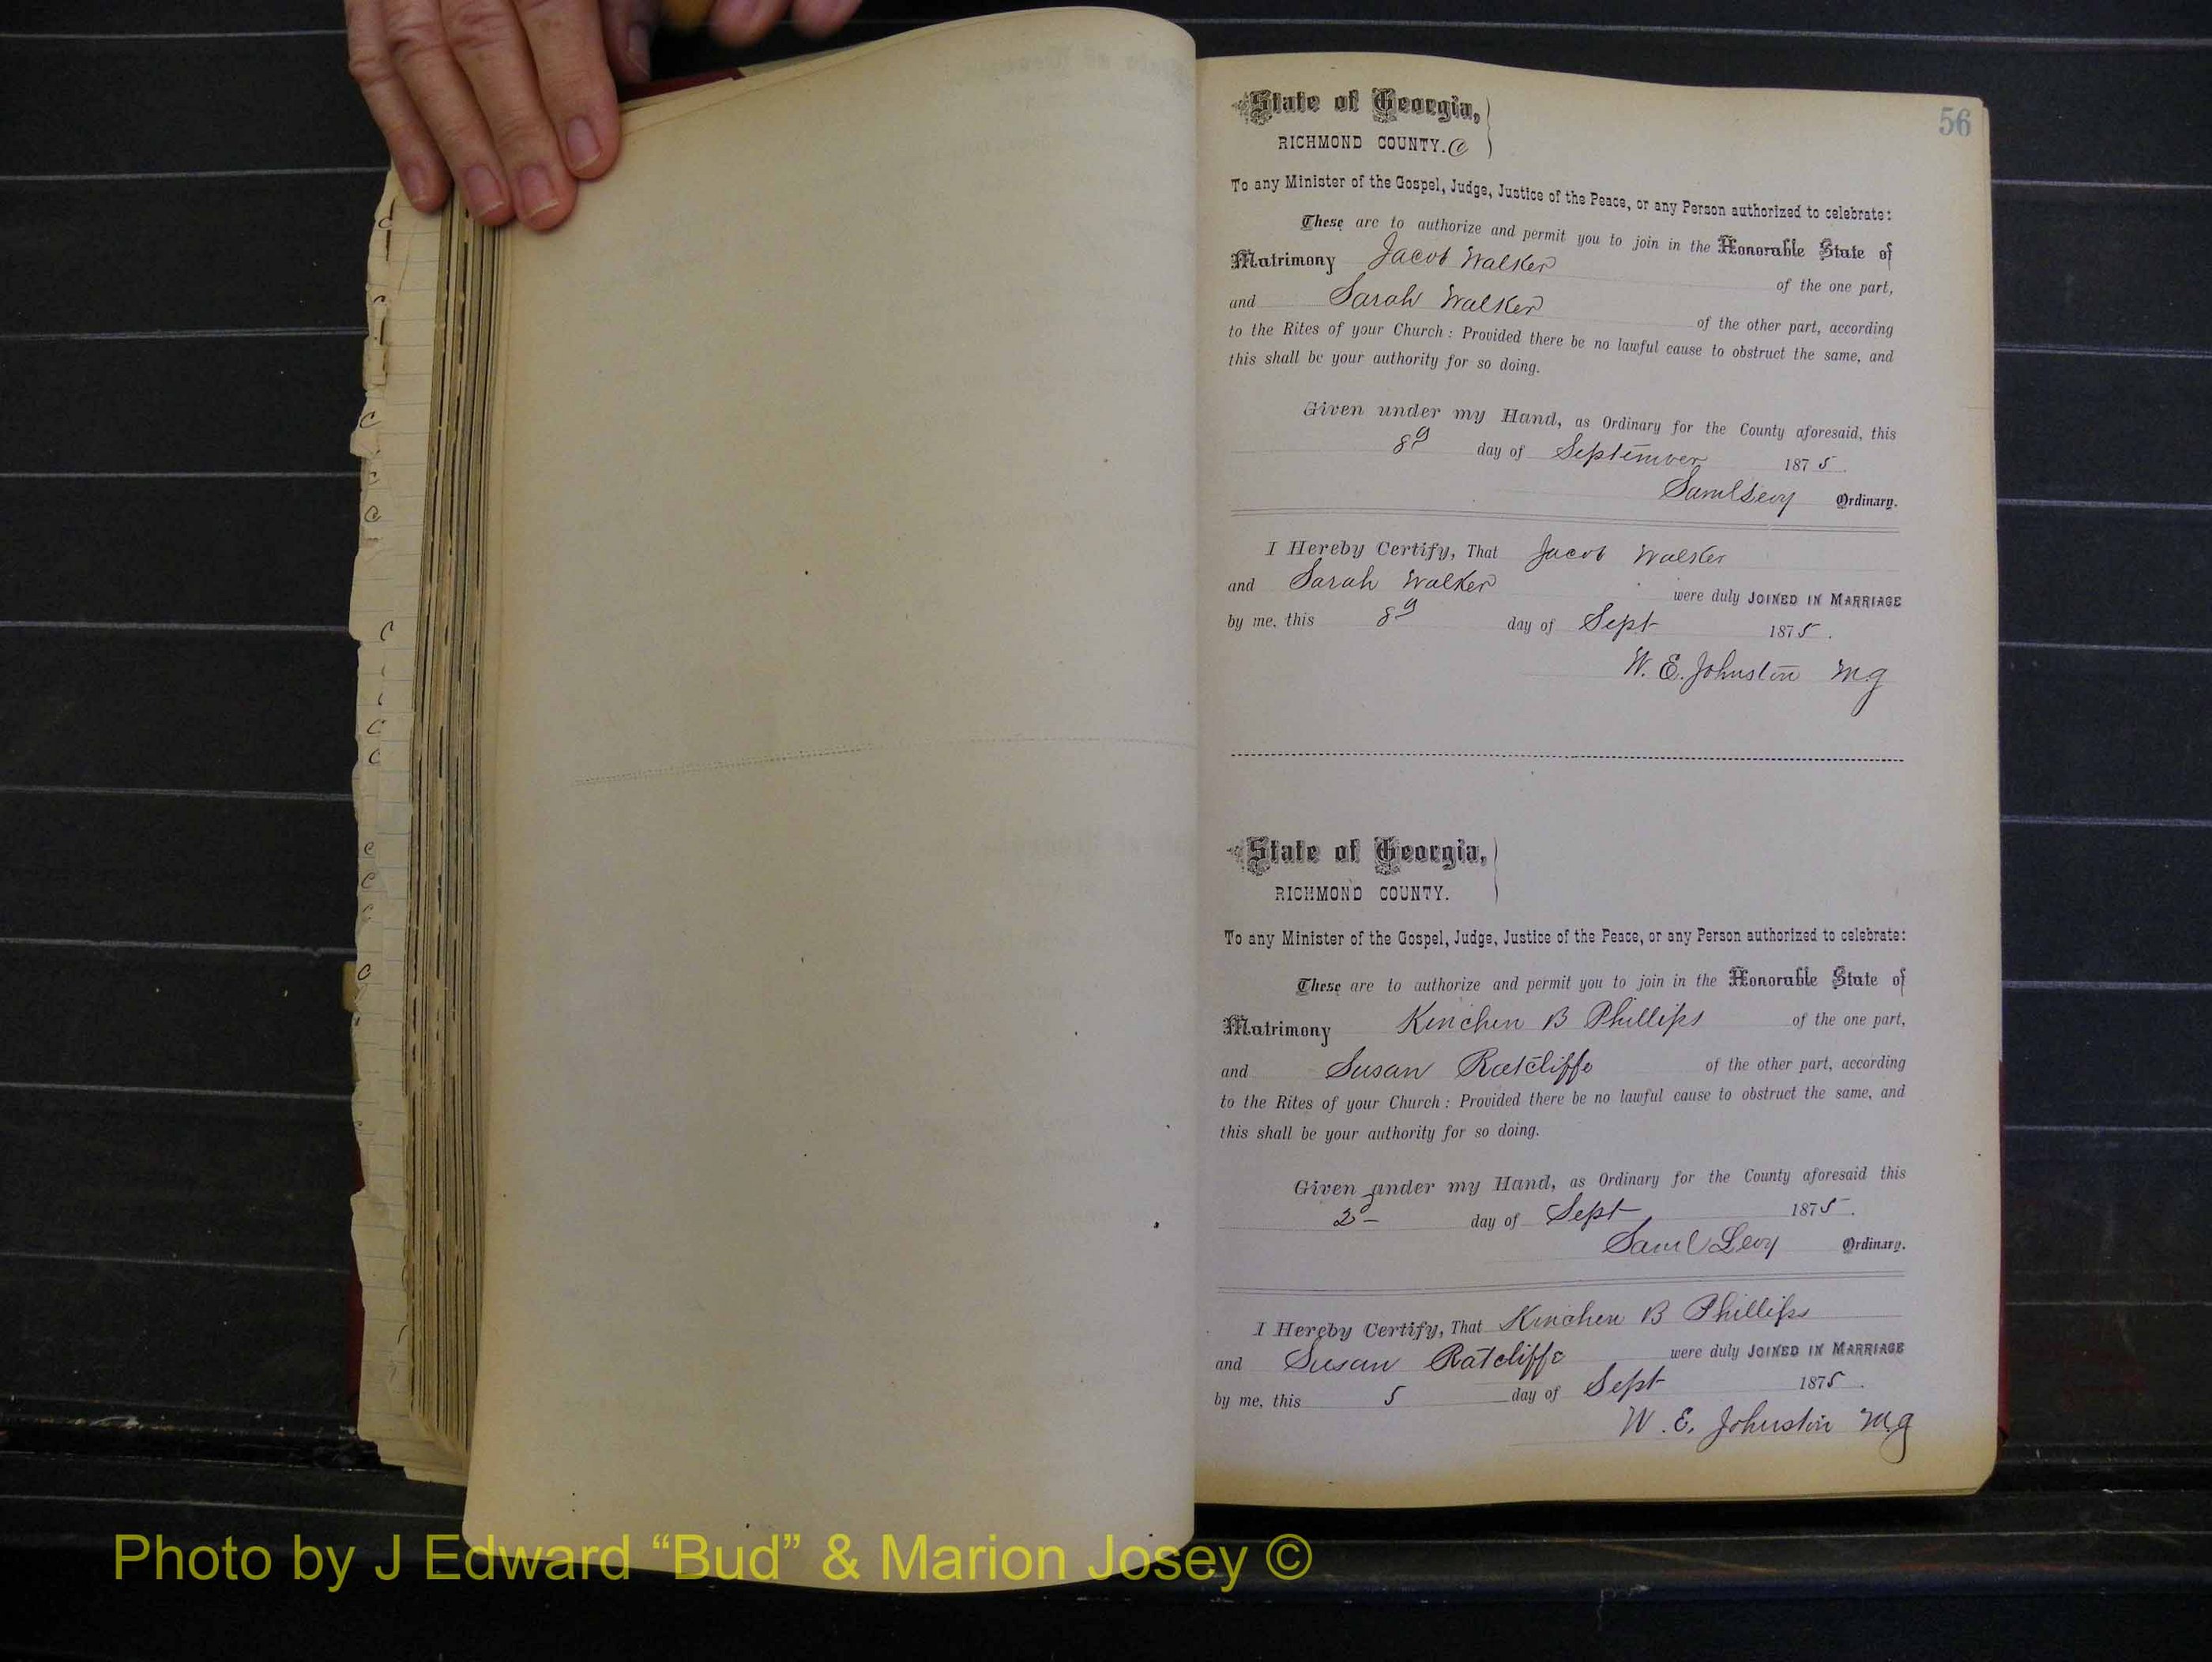 56
State of Georgia,
RICHMOND COUNTY. C
To any Minister of the Gospel, Judge, Justice of the Peace, or any Person authorized to celebrate:
These are to authorize and permit you to join in the Honorable State of
Matrimony Jacob Walker of the one part,
and Sarah Walker of the other part, according
to the Rites of your Church: Provided there be no lawful cause to obstruct the same, and
this shall be your authority for so doing.
Given under my Hand, as Ordinary for the County aforesaid, this
8 day of September 1875.
Saml Levy Ordinary.
I Hereby Certify, That Jacob Walker
and Sarah Walker were duly JOINED IN MARRIAGE
by me, this 8 day of Sept 1875.
W. E. Johnston M.g
State of Georgia,
RICHMOND COUNTY.
To any Minister of the Gospel, Judge, Justice of the Peace, or any Person authorized to celebrate:
These are to authorize and permit you to join in the Honorable State of
Matrimony Kinchen B Phillips of the one part,
and Susan Ratcliffe of the other part, according
to the Rites of your Church: Provided there be no lawful cause to obstruct the same, and
this shall be your authority for so doing.
Given under my Hand, as Ordinary for the County aforesaid this
2d day of Sept 1875.
Saml Levy Ordinary.
I Hereby Certify, That Kinchen B Phillips
and Susan Ratcliffe were duly JOINED IN MARRIAGE
by me, this 5 day of Sept 1875.
W. E. Johnston M.g
Photo by J Edward “Bud” & Marion Josey ©